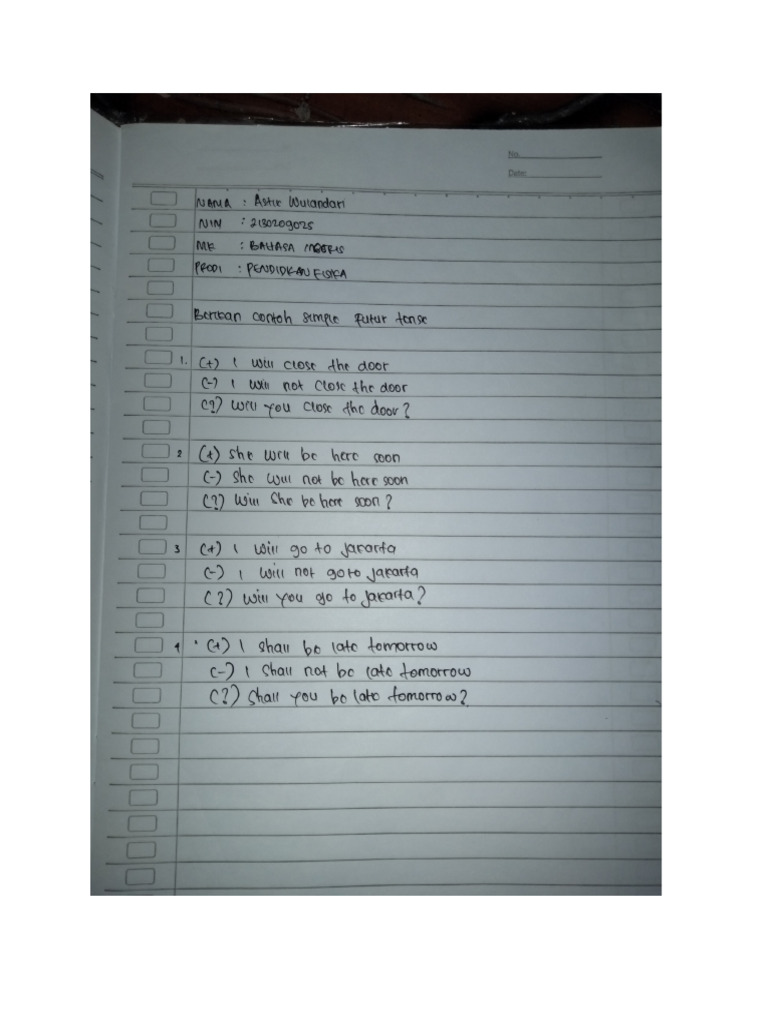 No.
Date:
NAMA : Astir Wulandari
NIM : 2130209025
MK : BAHASA INGGRIS
PRODI : PENDIDKAN FISIKA
Berikan contoh simple futur tense
1. (+) I will close the door
(-) I will not close the door
(?) Will you close the door?
2 (+) She will be here soon
(-) She will not be here soon
(?) Will She be here soon?
3 (+) I will go to jakarta
(-) I will not go to jakarta
(?) Will you go to jakarta?
4 (+) I shall be late tomorrow
(-) I shall not be late tomorrow
(?) Shall you be late tomorrow?